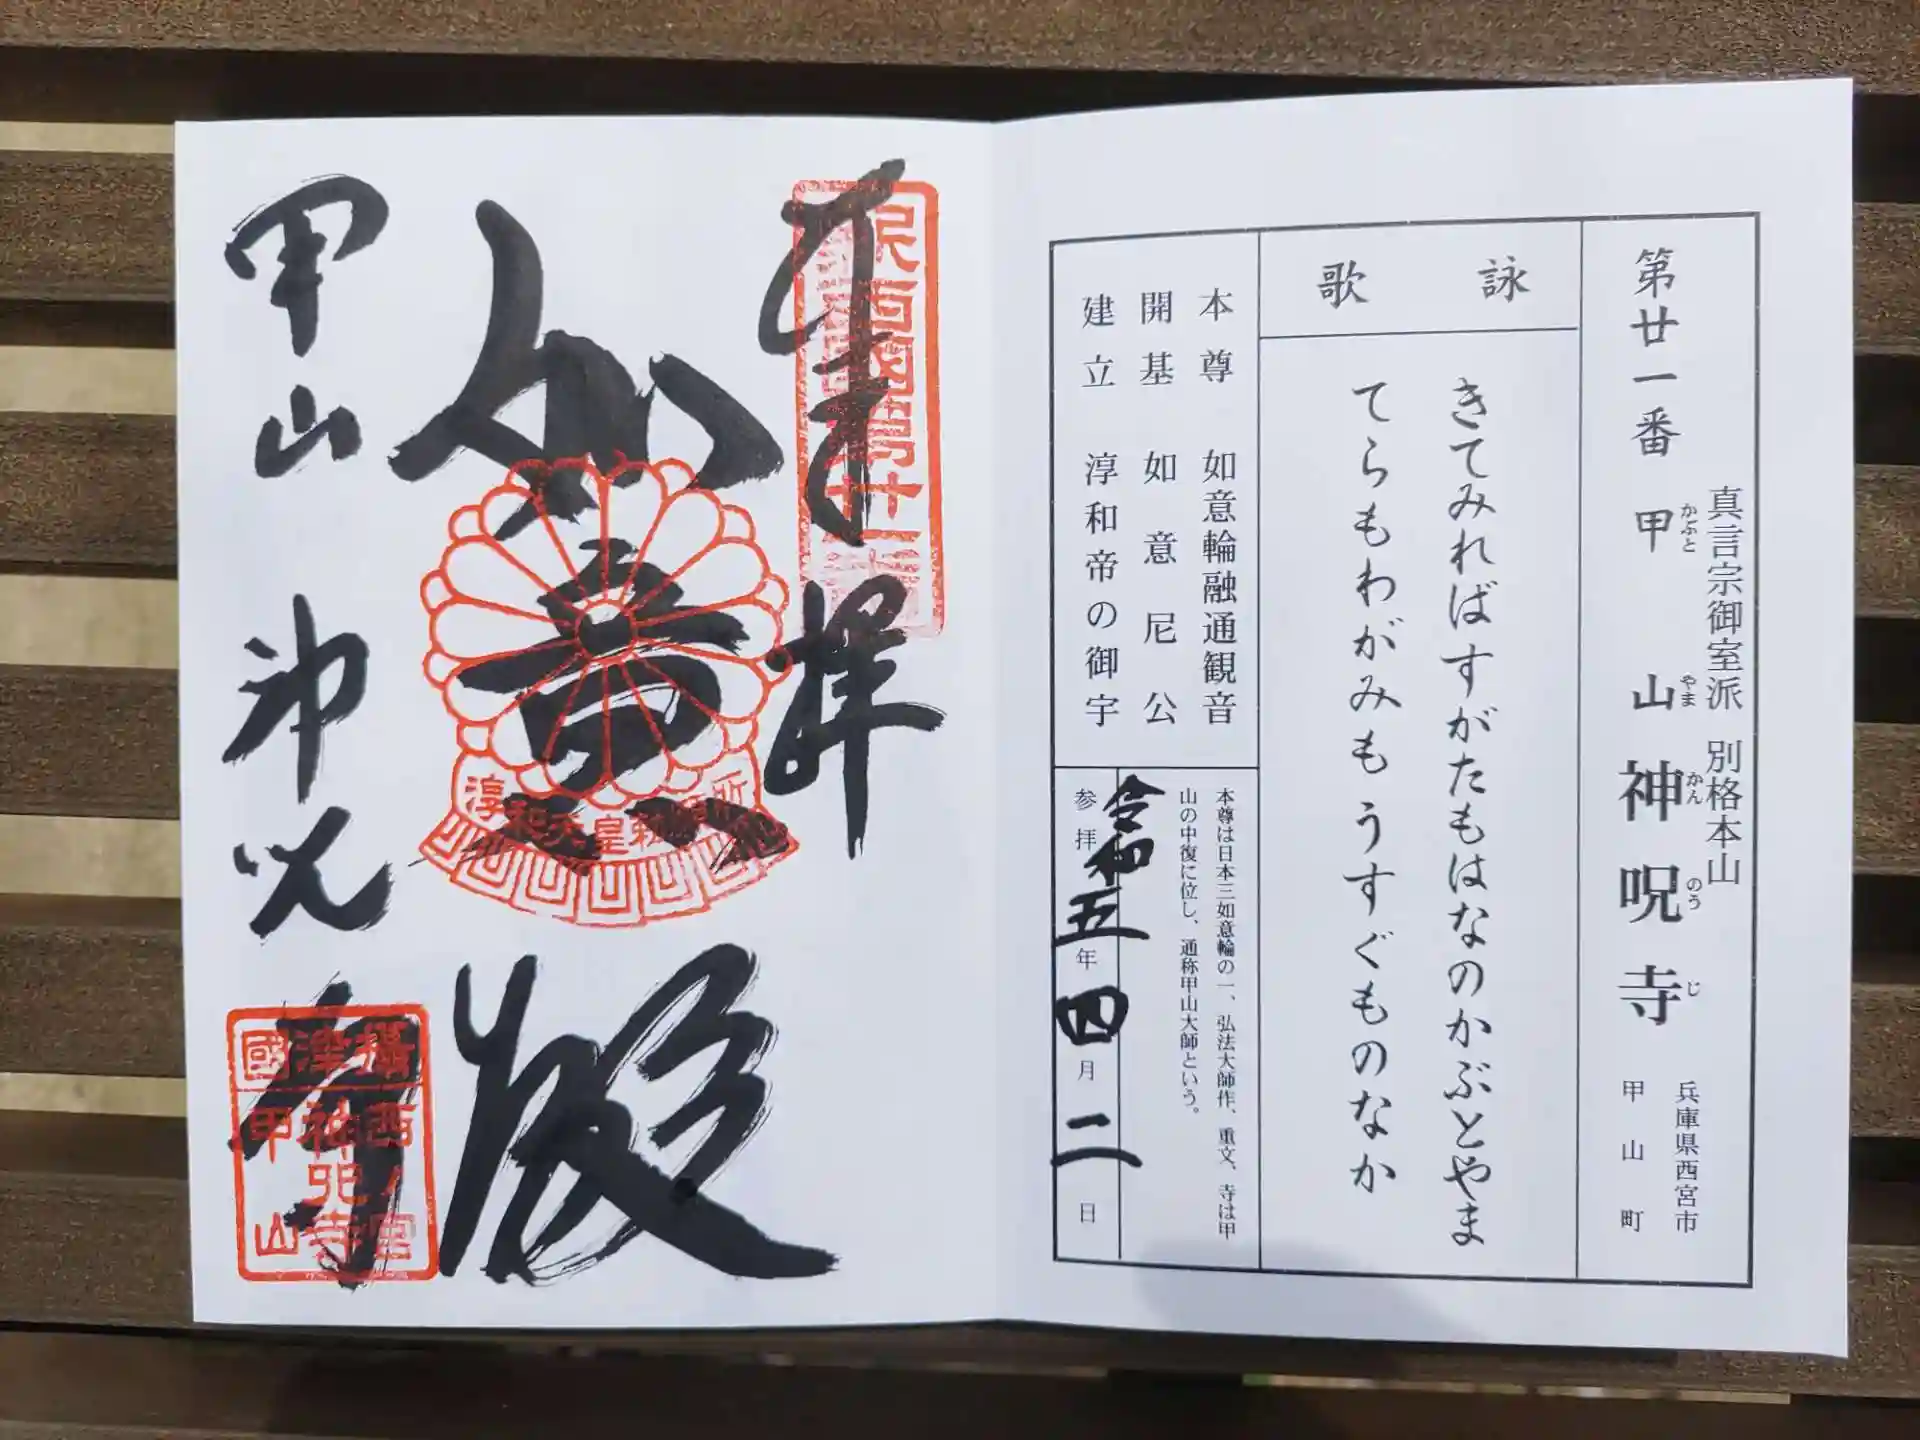 真言宗御室派 別格本山
第廿一番 甲山神呪寺
かぶと やま かん のう じ
兵庫県西宮市
甲山町
詠歌
きてみればすがたもはなのかぶとやま
てらもわがみも うすぐものなか
本尊 如意輪融通観音
開基 如意尼公
建立 淳和帝の御宇
本尊は日本三如意輪の一、弘法大師作、重文、寺は甲
山の中復に位し、通称甲山大師という。
参拝 令和五年四月二日
奉拝
如意殿
甲山 神呪寺
淳和天皇勅願所
攝津國
西ノ宮
神呪寺
甲山